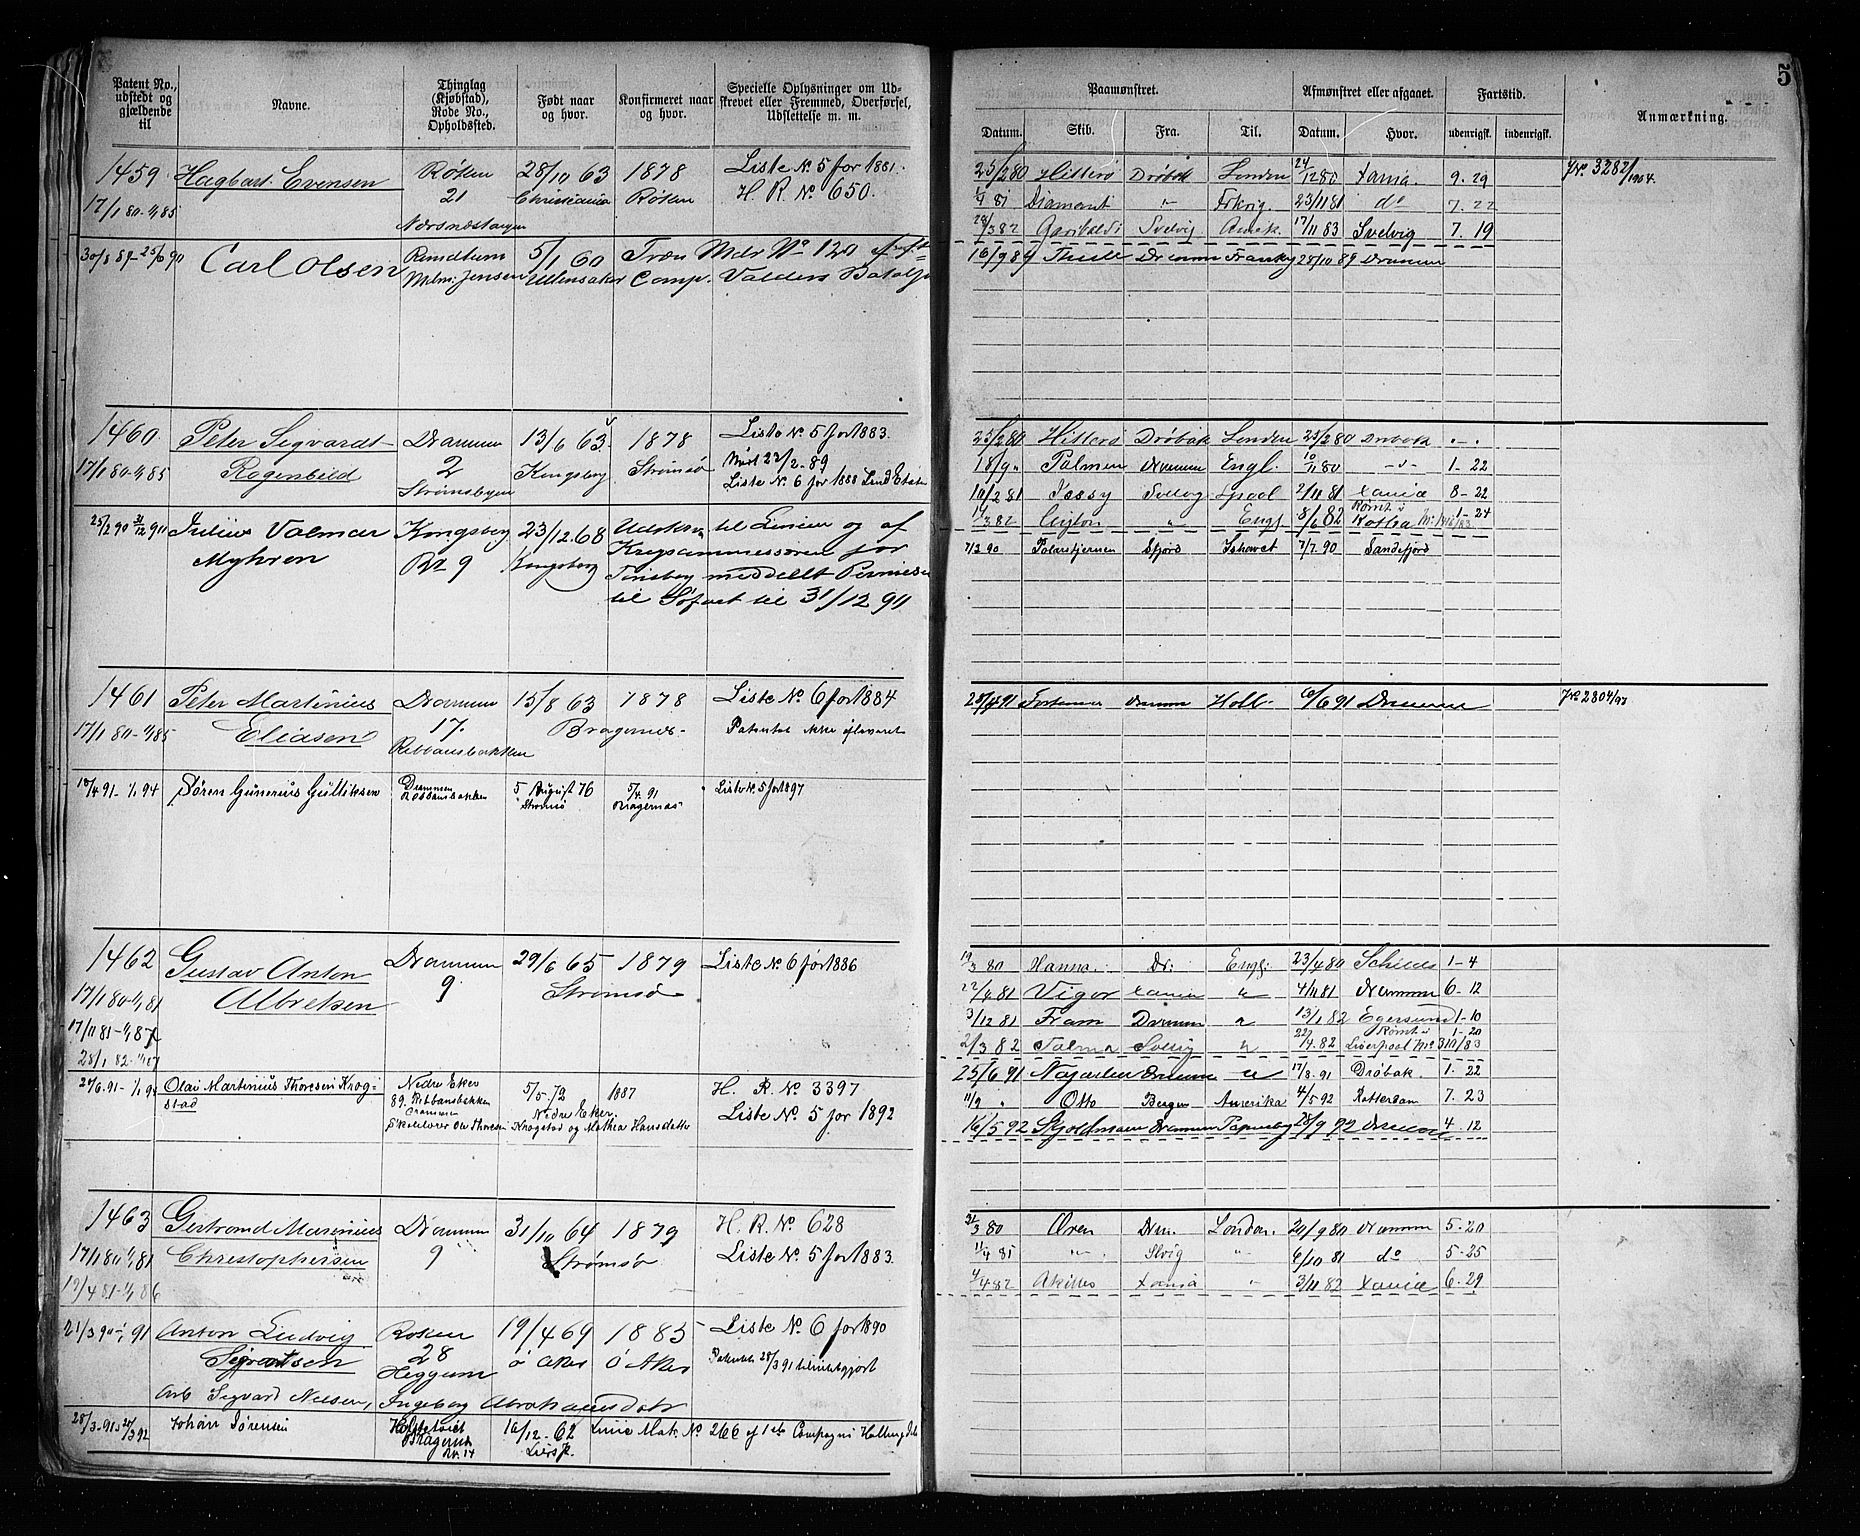 5
Patent No., udstedt og gjældende til
Navne.
Thinglag (Kjøbstad), Rode No., Opholdssted.
Født naar og hvor.
Konfirmeret naar og hvor.
Specielle Oplysninger om Udskrevet eller Fremmed, Overførsel, Udslettelse m. m.
Paamønstret.
Afmønstret eller afgaaet.
Fartstid.
Anmærkning.
Datum. Skib. Fra. Til. Datum. Hvor. udenrigsk. indenrigsk.
1459 Hagbart Evensen Røken 28/10 63 1878 Liste No 5 for 1881.
17/1 80-1/1 85 21 Christiania Røken H. R. No 650.
Nærsnæstangen
25/2 80 Hitterø Drøbak London 24/12 80 Xania. 9. 29 JNo 3282/1904.
1/4 81 Diamant " 23/11 81 do 7. 22
28/3 82 Garibaldi Svelvig 17/11 83 Svelvig 7. 19
Carl Olsen 5/1 60 Træn Mdr No 120
Wilm. Jensen Ullensaker Comp. Valders Batalj
16/9 89 Thule Drammen 28/10 89 Drammen
1460. Peter Sigvardt Drammen 13/6 63 1878 Liste No 5 for 1883.
17/1 80-1/1 85 Rogenbild 2 Kongsberg Strømsø 22/2-89
Strømsbyen Liste No 6 for 1888
25/2 80 Hitterø Drøbak London 25/2 80 Drøbak " - "
18/9 " Palmen Drammen Engl. 10/11 80 -"- 1- 22
10/2 81 Jessy Svelvig 2/11 81 Xania 8- 22
" Engl 8/6 82 1- 24
25/2 90 31/12 90 Julius Valmar Kongsberg 23/12 68 til Linien og af
Myhren Rn 9 Kongsberg Krigscommissæren for
Tønsberg meddelt Permission
til Søfart til 31/12 90
7/2 90 Polarstjernen Sfjord Ishavet 7/7. 90 Sandefjord
1461 Peter Martinius Drammen 15/8 63 1878 Liste No 6 for 1884
17/1 80-1/1 85 Eliasen 17. Bragernes. Patentet ikke afleveret
Robbansbakken
Drammen Holl. 6/6 91 Drammen JNo 2804/97
10/4 91-1/1 94 Søren Gunerius Gulliksen Drammen 5 August 76 5/4 91 Liste No 5 for 1897
Robbansbakken Strømsø Bragernæs
1462 Gustav Anton Drammen 29/6 65 1879 Liste No. 6 for 1886
17/1 80-1/1 81 Albretsen 9 Strømsø
17/11 81-1/1 87
28/1 82-1/1 87
19/3 80 Hanna. Dr: Engl: 23/4 80 1- 4
22/4 81 Vigor Xania " 4/11 81 Drammen 6- 12
3/12 81 Fram Drammen " 13/1 82 Egersund 1- 10
2/3 82 Svelvig " 22/7 82 Liverpool 1- 20
27/6 91-1/1 94 Olai Martinius Thoresen Krogstad Nedre Eker 5/5-72 1887 H. R. No 3397.
89. Robbansbakken Nedre Eker. Liste No 5 for 1892
Drammen
Skolelærer Ole Thoresen Krogstad og Mathea Hansdatter
25/6 91 Drammen " 17/8. 91 Drøbak. 1- 22
11/9 " Otto Bergen Amerika 4/5 92 Rotterdam 7. 23
16/5 92 Skjoldmøen Drammen 25/9 92 Drammen 4. 12
1463 Gertromd Marinius Drammen 31/10 64 1879 H. R. No 628
17/1 80-1/1 81 Christophersen 9 Strømsø Liste No 5 for 1883.
19/4 81-1/1 86
31/3 80 Øren Drm. London. 20/9 80 Drammen 5- 20
11/4 81 " " 6/10 81 do 5- 25
4/4 82 Akilles Xania " 3/11 82 Xania 6. 29
21/3 90-1/1 91 Anton Ludvig Røken 19/4 69 1885 Liste No 6 for 1890
Sigvartsen 28 Ø Aker Ø Aker Patentet 28/3 91 tilintetgjort
Heggum
Sigvard Nielsen, Ingeborg Abrahamsdatter
28/3-91 Johan Sørensen Bragernes 16/12-62 Linie Mdr. No 266 af 1ste Compagni
Rn. 14